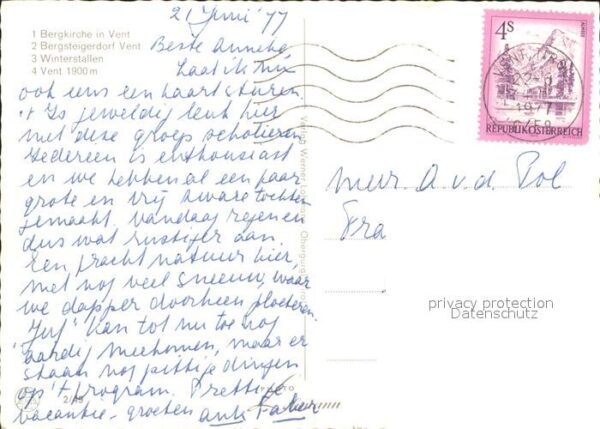 21 Juni '77
1 Bergkirche in Vent
2 Bergsteigerdorf Vent
3 Winterstallen
4 Vent 1900 m
Beste Anneke
Laat ik nu
ook eens een kaart sturen.
't Is geweldig leuk hier
met deze groep scholieren
Iedereen is enthousiast
en we hebben al een paar
grote en vrij zware tochten
gemaakt. Vandaag regen en
dus wat rustiger aan.
Een pracht natuur hier,
met nog veel sneeuw, waar
we dapper doorheen ploeteren.
"Juf" kan tot nu toe nog
aardig meekomen, maar er
staan nog pittige dingen
op 't program. Prettige
vacantie - groeten
Verlag Werner
4S
REPUBLIK ÖSTERREICH
1977
6458
Mej. A v.d. Pol
privacy protection
Datenschutz